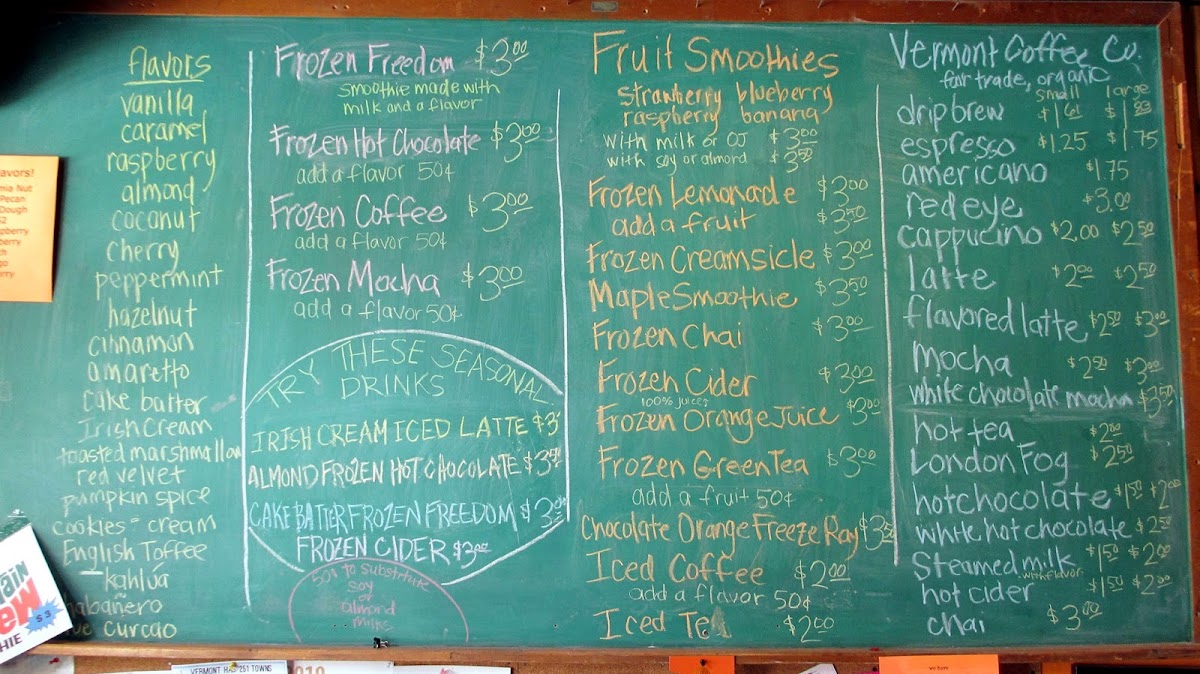 flavors
vanilla
caramel
raspberry
almond
coconut
cherry
peppermint
hazelnut
cinnamon
amaretto
cake batter
Irish cream
toasted marshmallow
red velvet
pumpkin spice
cookies = cream
English Toffee
kahlúa
habañero
curcao
Frozen Freedom $3.00
smoothie made with
milk and a flavor
Frozen Hot Chocolate $3.00
add a flavor 50¢
Frozen Coffee $3.00
add a flavor 50¢
Frozen Mocha $3.00
add a flavor 50¢
TRY THESE SEASONAL
DRINKS
IRISH CREAM ICED LATTE $3
ALMOND FROZEN HOT CHOCOLATE $3.50
CAKE BATTER FROZEN FREEDOM $3.00
FROZEN CIDER $3.00
50¢ to substitute
soy
or
almond
milks
Fruit Smoothies
strawberry blueberry
raspberry banana
with milk or OJ $3.00
with soy or almond $3.50
Frozen Lemonade $3.00
add a fruit $3.50
Frozen Creamsicle $3.00
Maple Smoothie $3.50
Frozen Chai $3.00
Frozen Cider $3.00
100% juice?
Frozen Orange Juice $3.00
Frozen Green Tea $3.00
add a fruit 50¢
Chocolate Orange Freeze Ray $3.50
Iced Coffee $2.00
add a flavor 50¢
Iced Tea $2.00
Vermont Coffee Co.
fair trade, organic
small large
drip brew $1.61
espresso $1.25 $1.75
americano $1.75
redeye $3.00
cappucino $2.00 $2.50
latte $2.00 $2.50
flavored latte $2.50 $3.00
Mocha $2.50 $3.00
white chocolate mocha $3.50
hot tea $2.00
London Fog $2.50
hot chocolate $1.50 $2.00
white hot chocolate $2.50
Steamed milk $1.50 $2.00
with flavor
hot cider $1.50 $2.00
chai $3.00
avors!
mia Nut
Pecan
Dough
spberry
berry
VERMONT HAS 251 TOWNS